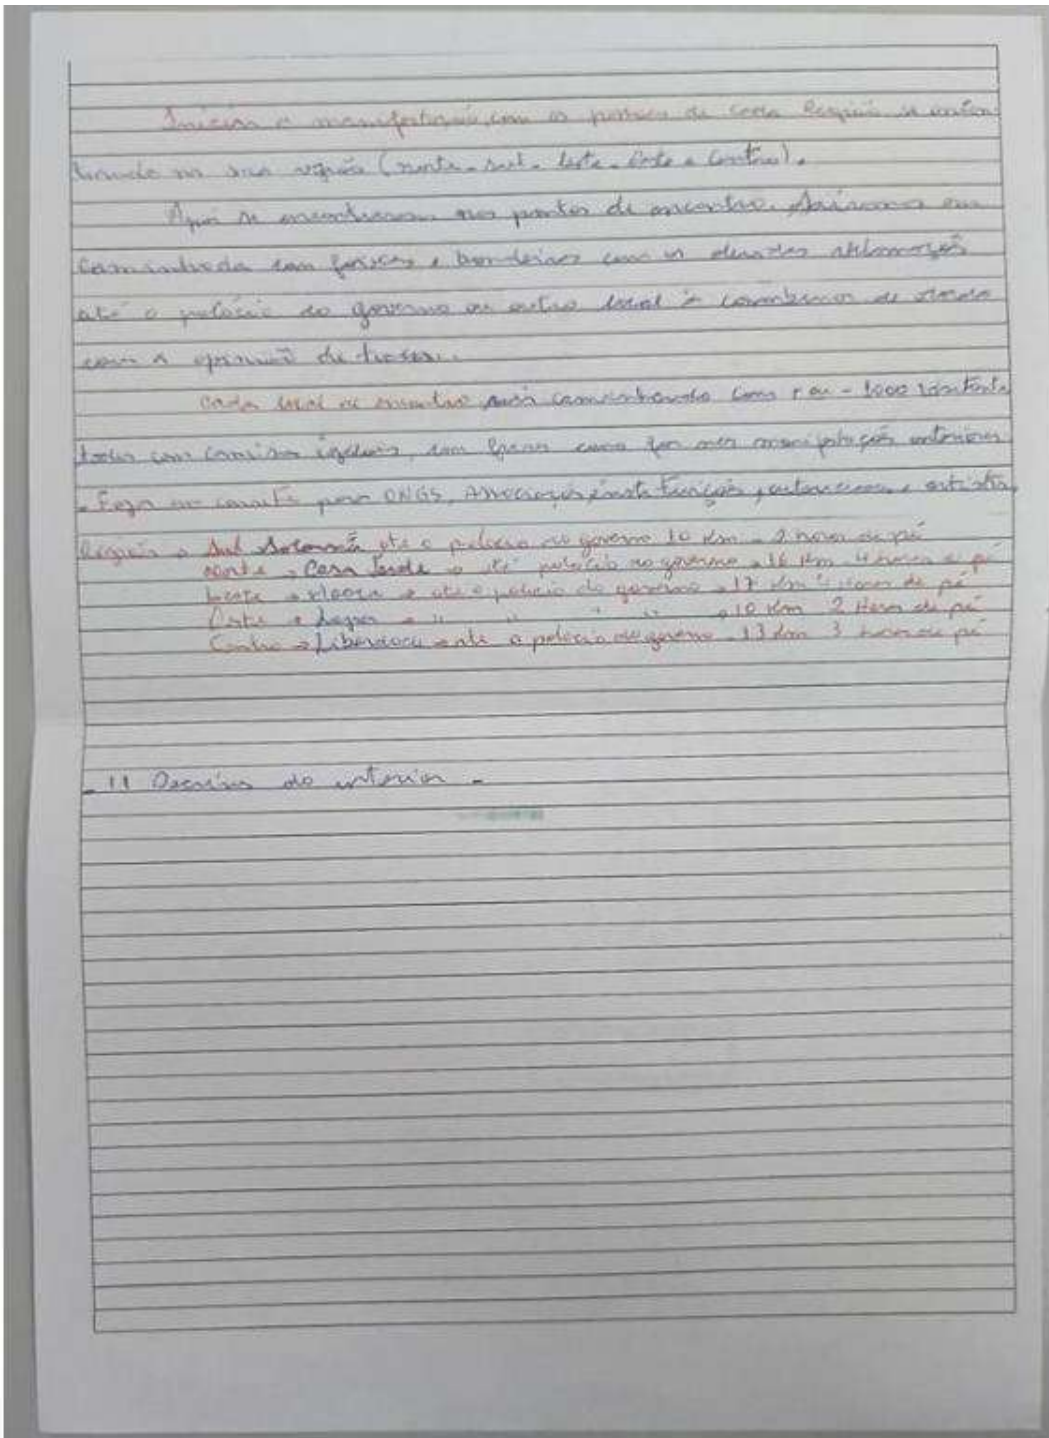 Iniciar a manifestação, com as pessoas de cada Região se encon
trando na sua região (norte - sul - leste - oeste e Centro).
Após se encontrarem nos pontos de encontro. Sairemos em
Caminhada com faixas e bandeiras com os
até o palácio do governo ou outro local à combinar de acordo
com a opinião de todos.
Cada local de encontro será caminhando com + ou - 1000
todos com camisas iguais, com faixas como foi nas manifestação anteriores
- Faça os convite para ONGS, Associação, e artista
Região o Sul até o palácio do governo 10 Km - 2 horas de pé
norte → Casa Verde → até palácio do governo → 16 Km 4 horas a pé
Leste → Mooca → até o palácio do governo → 17 Km 4 Horas de pé
Oeste → Lapa → " " " → 10 Km 2 Horas de pé
Centro → Liberdade → até o palácio do governo → 13 Km 3 horas de pé
- 11 do interior -